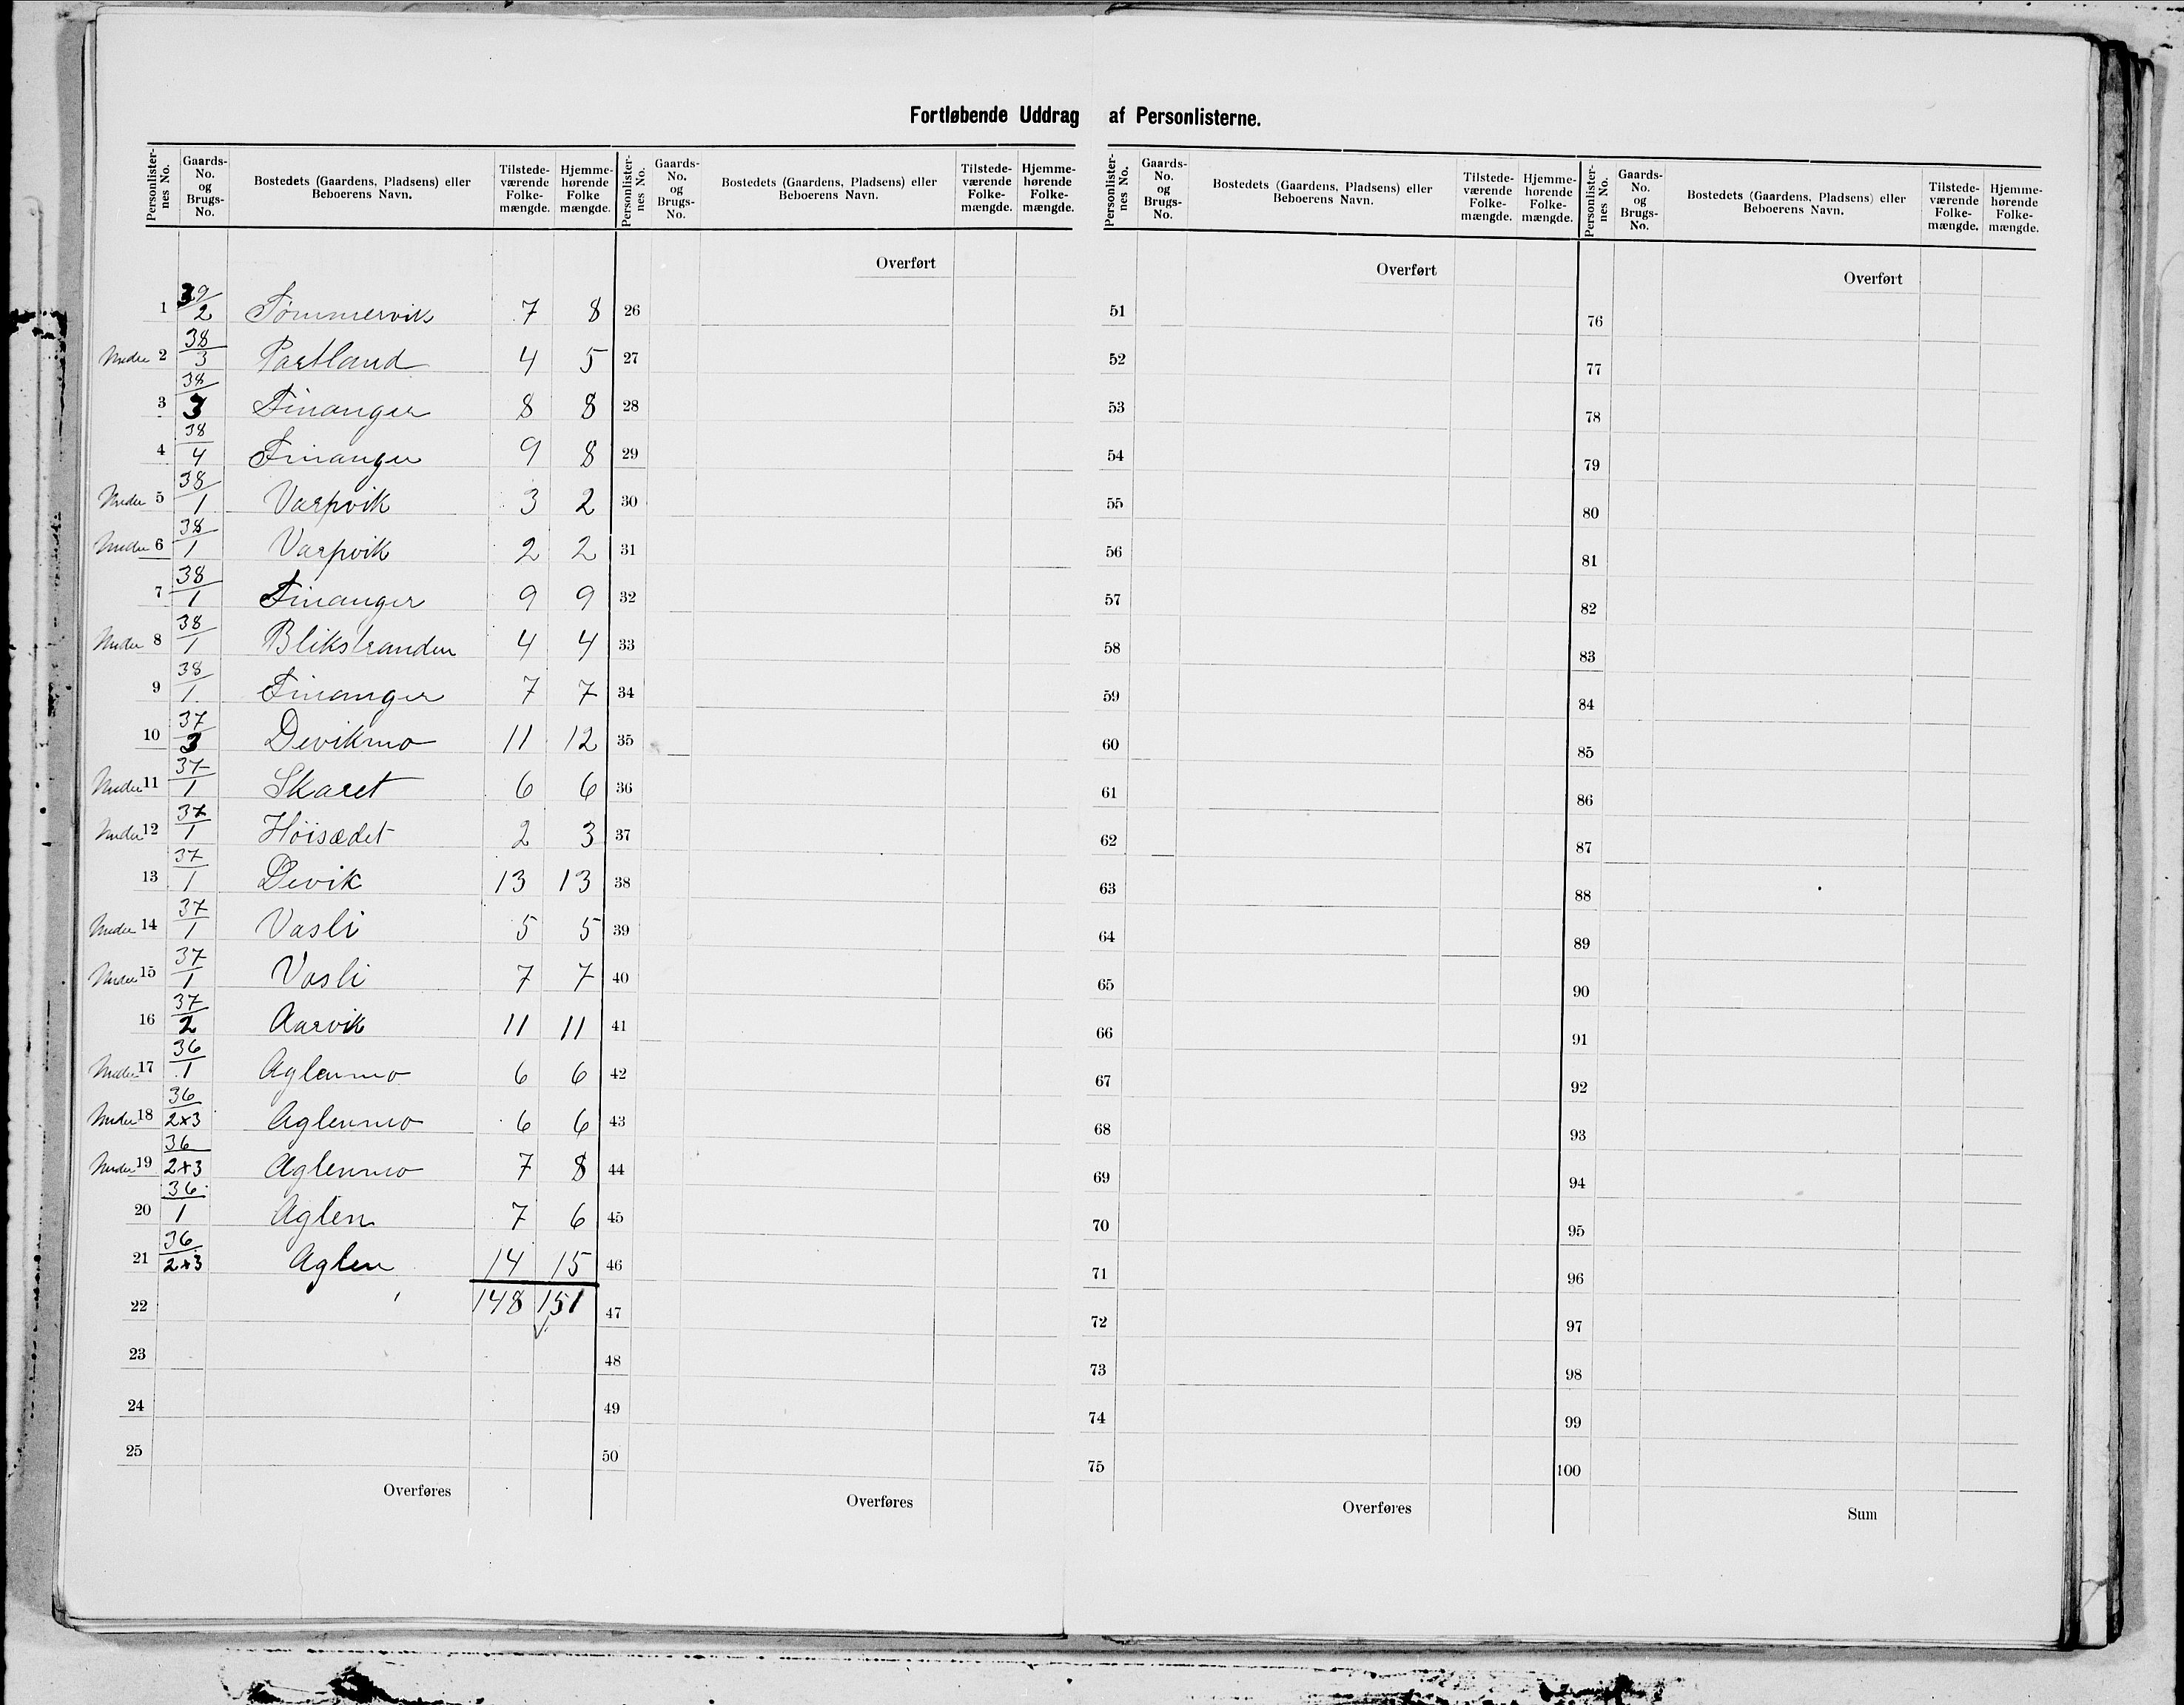 Fortløbende Uddrag af Personlisterne.
Personlister-nes No. | Gaards-No. og Brugs-No. | Bostedets (Gaardens, Pladsens) eller Beboerens Navn. | Tilstede-værende Folke-mængde. | Hjemme-hørende Folke mængde. | Personlister-nes No. | Gaards-No. og Brugs-No. | Bostedets (Gaardens, Pladsens) eller Beboerens Navn. | Tilstede-værende Folke-mængde. | Hjemme-hørende Folke-mængde. | Personlister-nes No. | Gaards-No. og Brugs-No. | Bostedets (Gaardens, Pladsens) eller Beboerens Navn. | Tilstede-værende Folke-mængde. | Hjemme-hørende Folke-mængde. | Personlister-nes No. | Gaards-No. og Brugs-No. | Bostedets (Gaardens, Pladsens) eller Beboerens Navn. | Tilstede-værende Folke-mængde. | Hjemme-hørende Folke-mængde.
Overført Overført Overført
1 39/2 Tømmervik 7 8 26 51 76
Under 2 38/3 Partland 4 5 27 52 77
3 38/3 Finanger 8 8 28 53 78
4 38/4 Finanger 9 8 29 54 79
Under 5 38/1 Varpvik 3 2 30 55 80
Under 6 38/1 Varpvik 2 2 31 56 81
7 38/1 Finanger 9 9 32 57 82
Under 8 38/1 Blikstranden 4 4 33 58 83
9 38/1 Finanger 7 7 34 59 84
10 37/3 Devikmo 11 12 35 60 85
Under 11 37/1 Skaret 6 6 36 61 86
Under 12 37/1 Høisædet 2 3 37 62 87
13 37/1 Devik 13 13 38 63 88
Under 14 37/1 Vasli 5 5 39 64 89
Under 15 37/1 Vasli 7 7 40 65 90
16 37/2 Aarvik 11 11 41 66 91
Under 17 36/1 Aglenmo 6 6 42 67 92
Under 18 36/2x3 Aglenmo 6 6 43 68 93
Under 19 36/2x3 Aglenmo 7 8 44 69 94
20 36/1 Aglen 7 6 45 70 95
21 36/2x3 Aglen 14 15 46 71 96
22 148 151 47 72 97
23 48 73 98
24 49 74 99
25 50 75 100
Overføres Overføres Overføres Sum